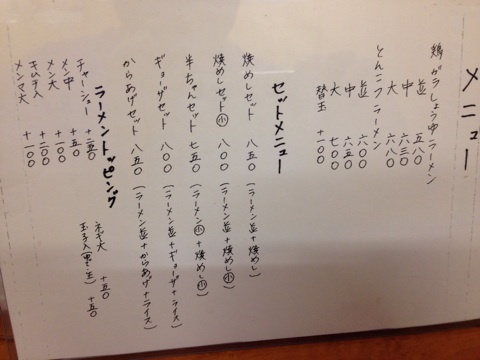 メニュー
鶏ガラしょうゆラーメン
並 五八〇
中 六三〇
大 六八〇
とんこつラーメン
並 六〇〇
中 六五〇
大 七〇〇
替玉 +一〇〇
セットメニュー
焼めしセット 八五〇 (ラーメン並+焼めし)
焼めしセット小 八〇〇 (ラーメン並+焼めし小)
半ちゃんセット 七五〇 (ラーメン小+焼めし小)
ギョーザセット 八〇〇 (ラーメン並+ギョーザ+ライス)
からあげセット 八五〇 (ラーメン並+からあげ+ライス)
ラーメントッピング
チャーシュー +二五〇
メン中 +五〇
メン大 +一〇〇
キムチ入 +二〇〇
メンマ大 +一〇〇
ネギ大 +五〇
玉子入(生) +五〇